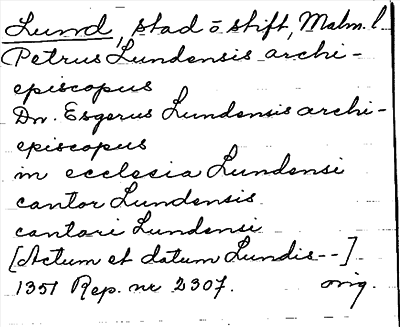 Lund, stad o stift, Malm. l.
Petrus Lundensis archi-
episcopus
Dn. Esgerus Lundensis archi-
episcopus
in ecclesia Lundensi
cantor Lundensis
cantari Lundensi
[Actum et datum Lundis--]
1351 Rep. nr 2307. orig.